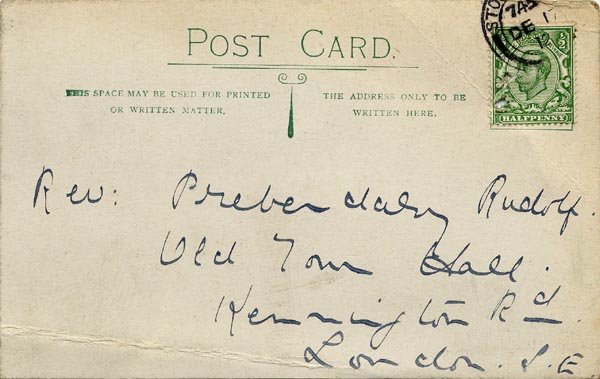 POST CARD.
THIS SPACE MAY BE USED FOR PRINTED
OR WRITTEN MATTER.
THE ADDRESS ONLY TO BE
WRITTEN HERE.
STO
7 AM
DE 17
½
HALFPENNY
Rev: Prebendary Rudolf.
Old Town Hall.
Kennington Rd.
London. S.E